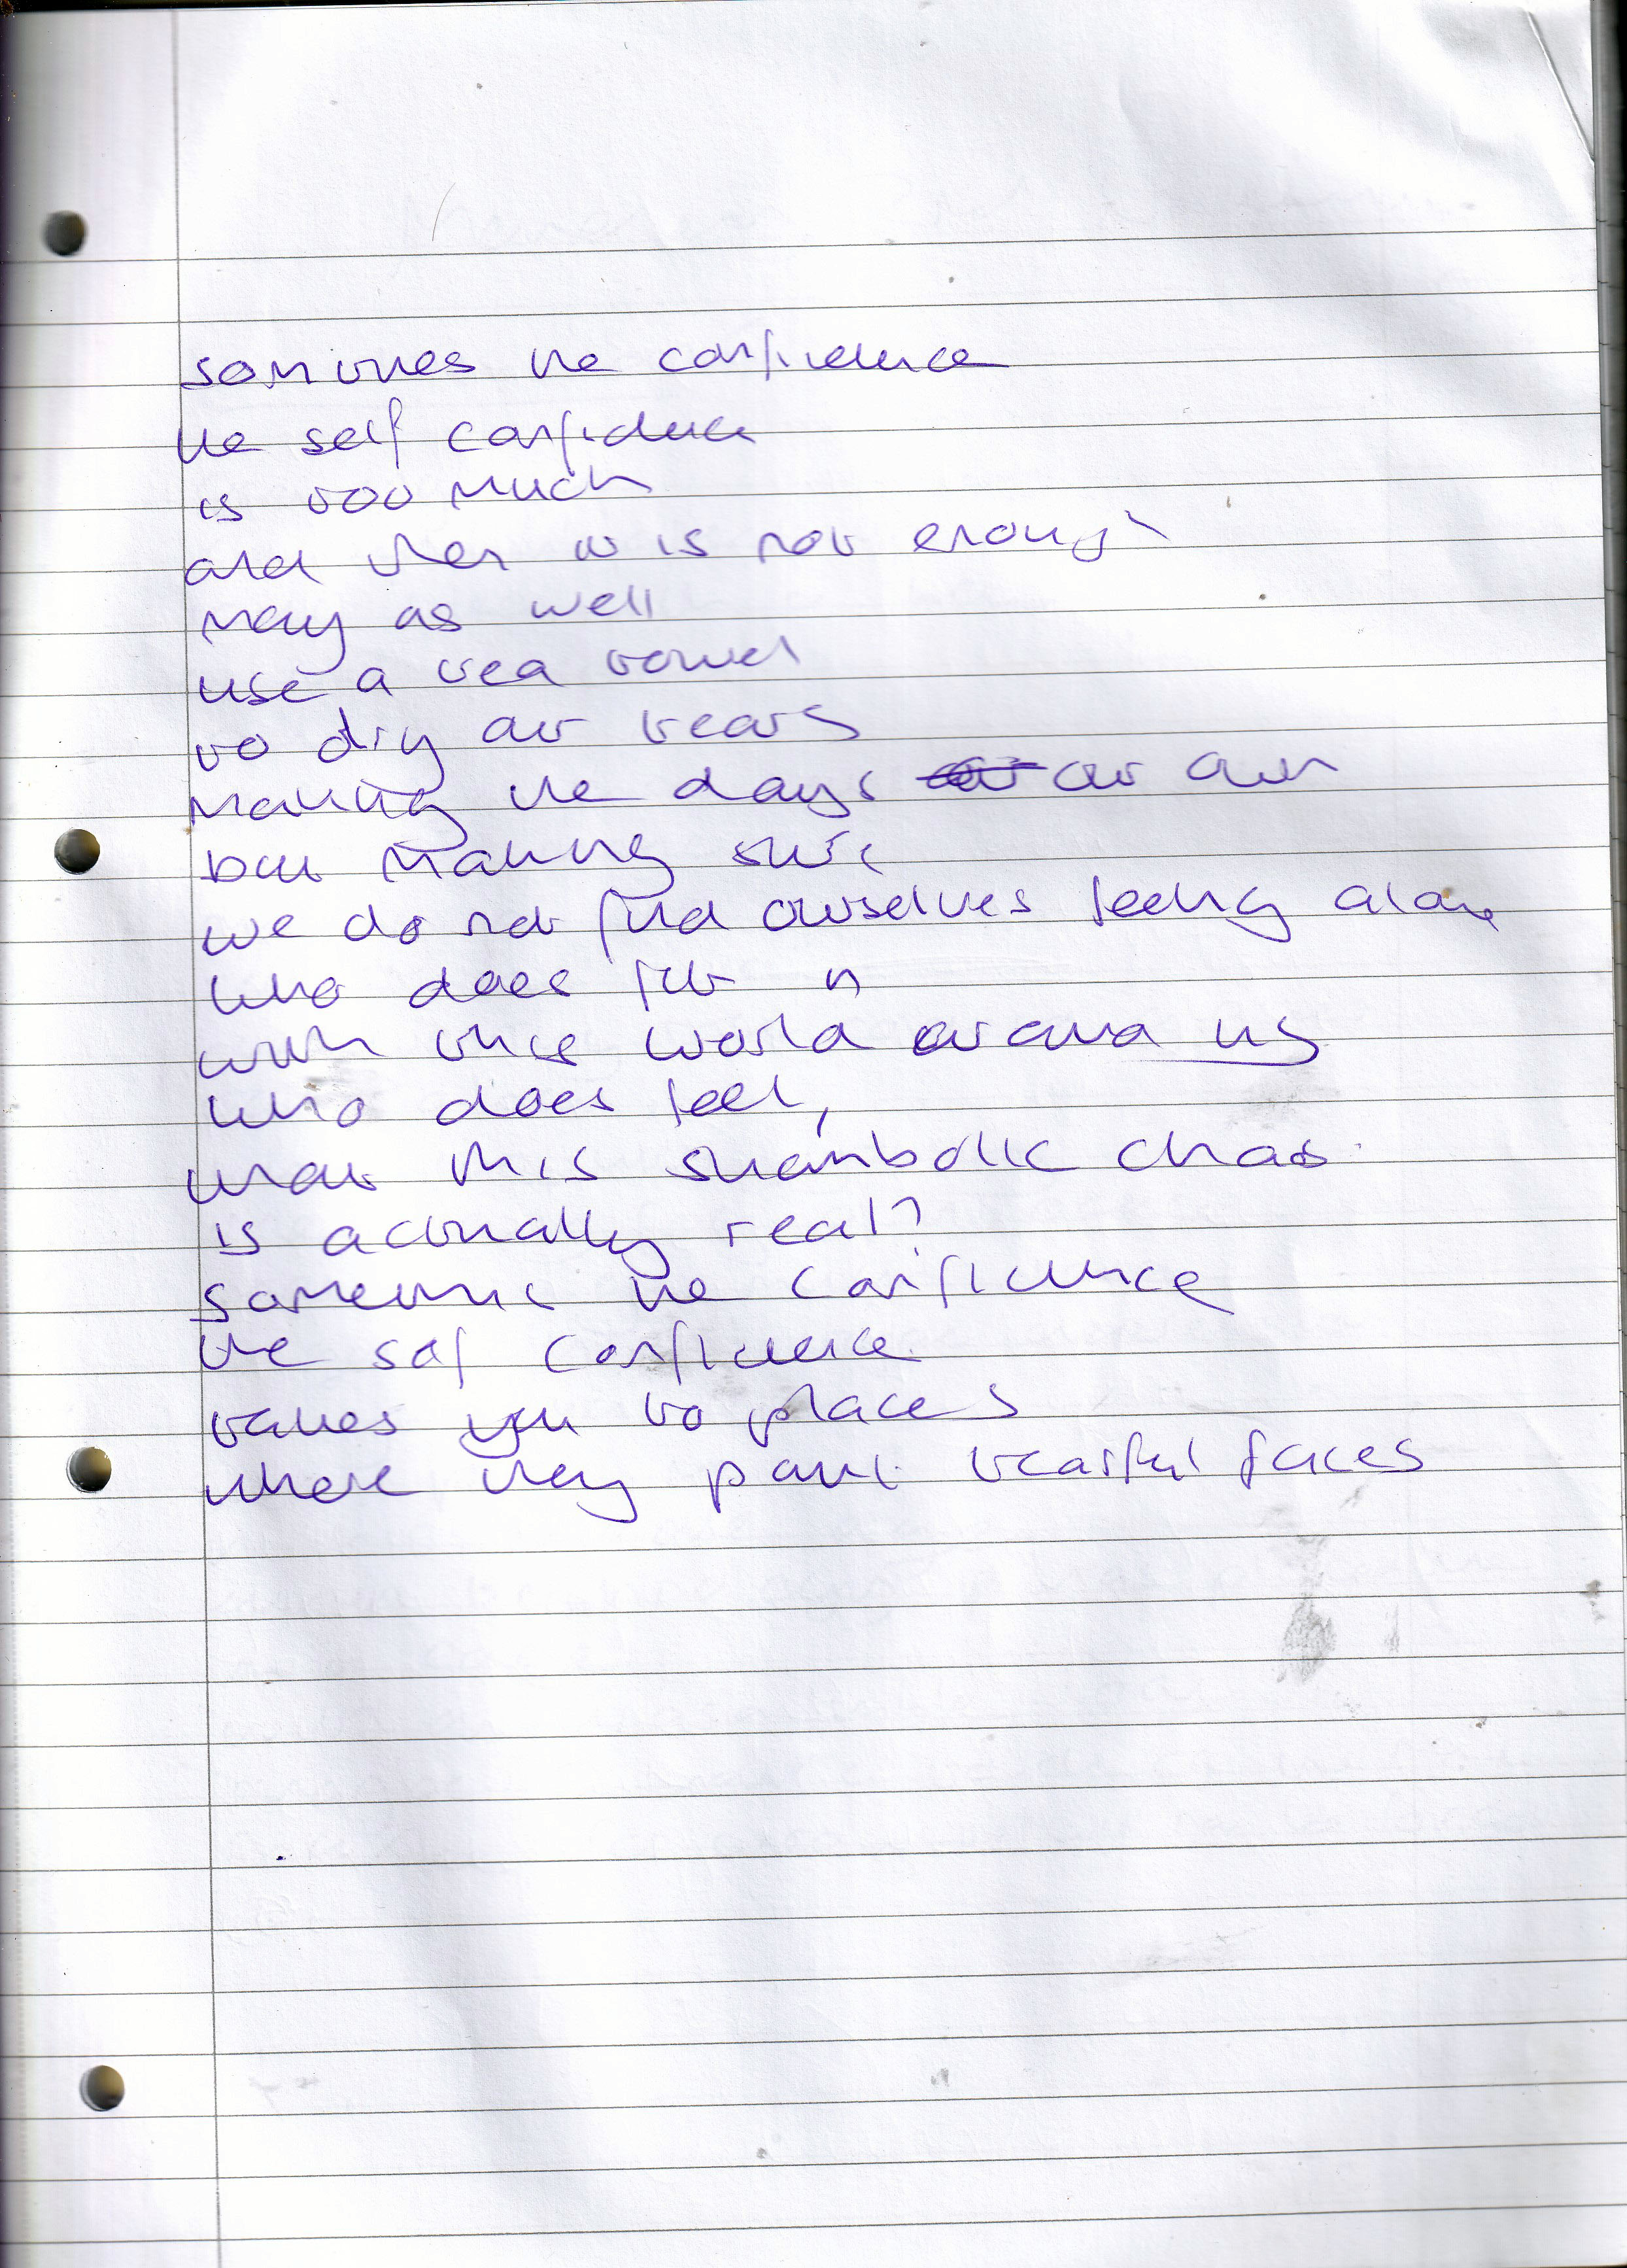 sometimes the confidence
the self confidence
is too much
and then it is not enough
may as well
use a tea towel
to dry our tears
making the days our own
but making sure
we do not find ourselves feeling alone
who does fit in
with this world around us
who does feel,
that this shambolic chaos
is actually real?
sometimes the confidence
the self confidence
takes you to places
where they paint tearful faces